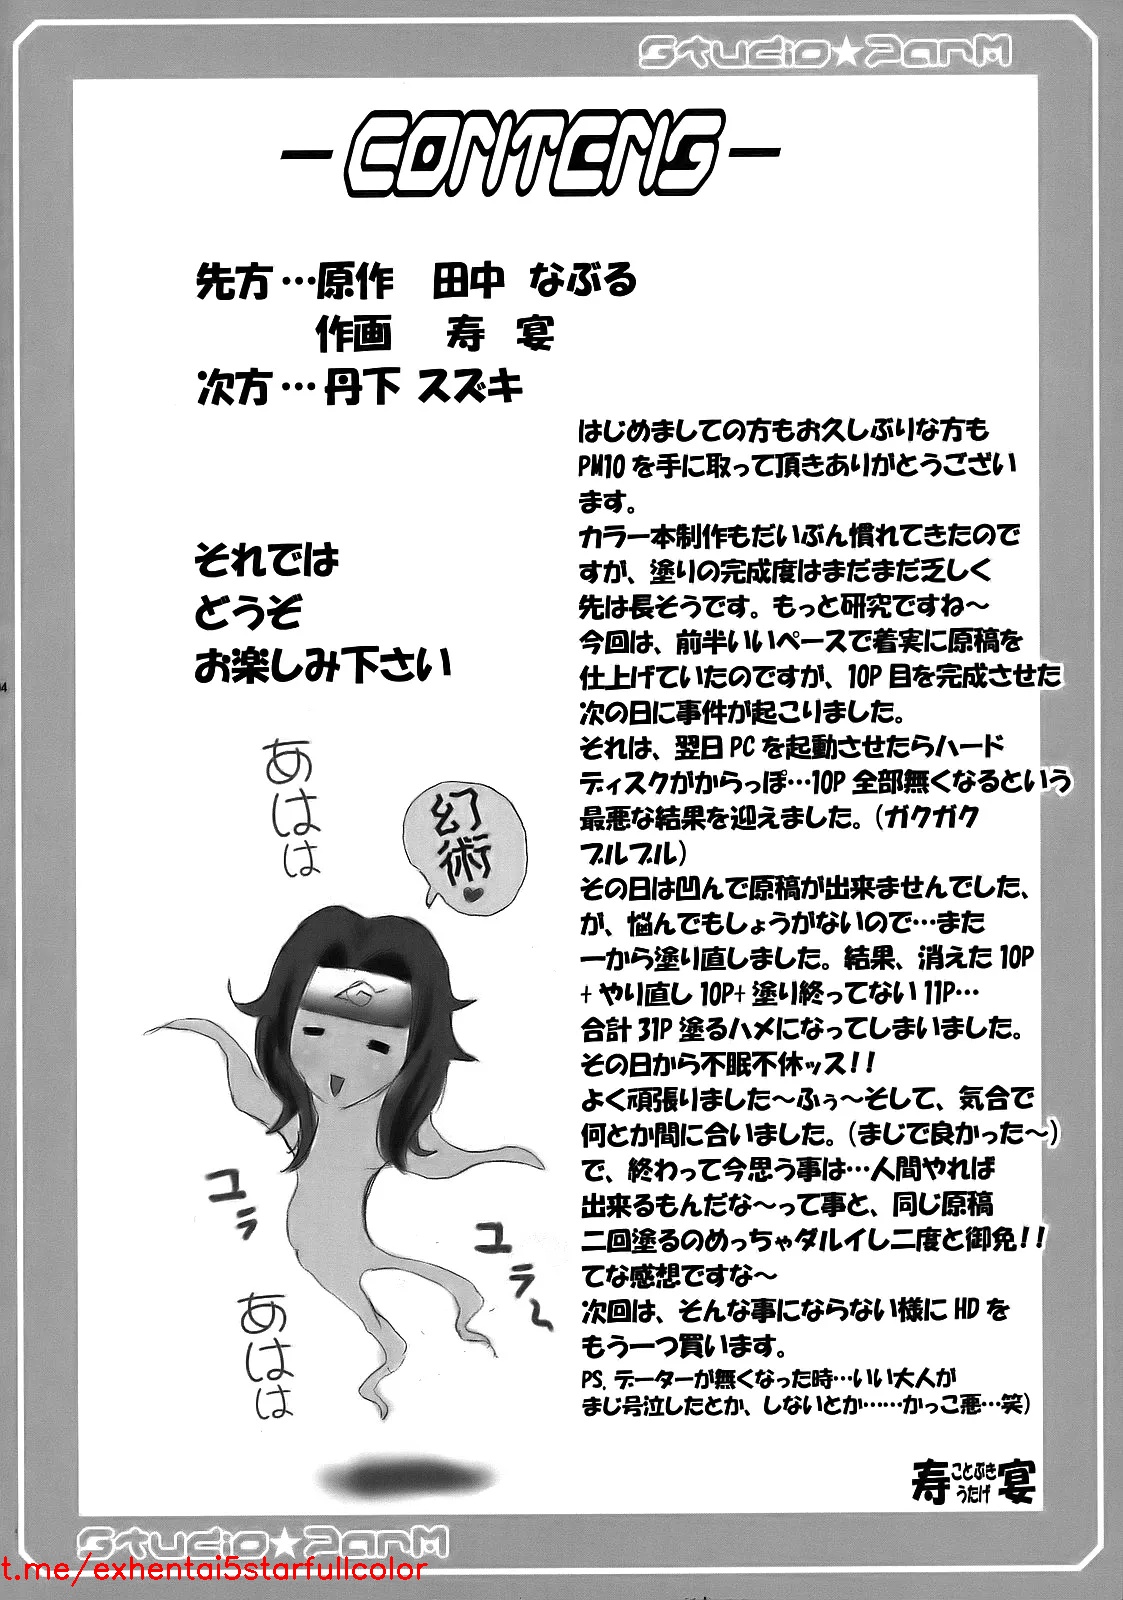 Studio★PanM
-CONTENS-
先方…原作　田中 なぶる
作画　寿 宴
次方…丹下 スズキ
はじめましての方もお久しぶりな方も
PM10を手に取って頂きありがとうござい
ます。
カラー本制作もだいぶん慣れてきたので
すが、塗りの完成度はまだまだ乏しく
先は長そうです。もっと研究ですね〜
今回は、前半いいペースで着実に原稿を
仕上げていたのですが、10P目を完成させた
次の日に事件が起こりました。
それは、翌日PCを起動させたらハード
ディスクがからっぽ…10P全部無くなるという
最悪な結果を迎えました。(ガクガク
ブルブル)
その日は凹んで原稿が出来ませんでした、
が、悩んでもしょうがないので…また
一から塗り直しました。結果、消えた10P
+やり直し10P+塗り終ってない11P…
合計31P塗るハメになってしまいました。
その日から不眠不休ッス!!
よく頑張りました〜ふぅ〜そして、気合で
何とか間に合いました。(まじで良かった〜)
で、終わって今思う事は…人間やれば
出来るもんだな〜って事と、同じ原稿
二回塗るのめっちゃダルイし二度と御免!!
てな感想ですな〜
次回は、そんな事にならない様にHDを
もう一つ買います。
PS.データーが無くなった時…いい大人が
まじ号泣したとか、しないとか……かっこ悪…笑)
寿 宴
ことぶき
うたげ
それでは
どうぞ
お楽しみ下さい
あはは
幻術♥
ユラ
ユラ〜
あはは
Studio★PanM
t.me/exhentai5starfullcolor